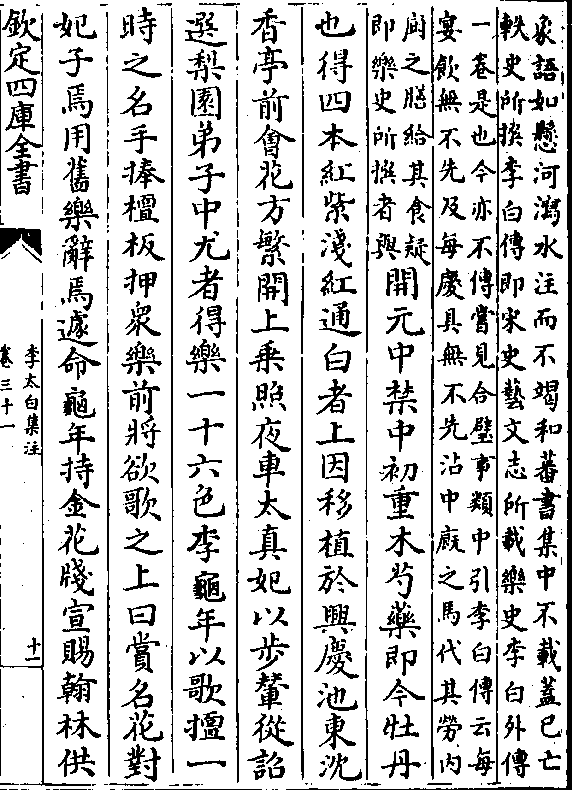 象語如懸河瀉水注而不竭和蕃書集中不載蓋已亡
軼史所撰李白傳即宋史藝文志所載樂史李白外傳
一卷是也今亦不傳嘗見合璧事類中引李白傳云每
宴飲無不先及每慶具無不先沾中廐之馬代其勞内
厨之膳給其食疑
即樂史所撰者歟
開元中禁中初重木芍藥即今牡丹
也得四本紅紫淺紅通白者上因移植於興慶池東沈
香亭前會花方繁開上乗照夜車太真妃以步輦從詔
選梨園弟子中尤者得樂一十六色李龜年以歌擅一
時之名手捧檀板押衆樂前將欲歌之上曰賞名花對
妃子焉用舊樂辭焉遽命龜年持金花牋宣賜翰林供
欽定四庫全書
李太白集注
卷三十一
十一